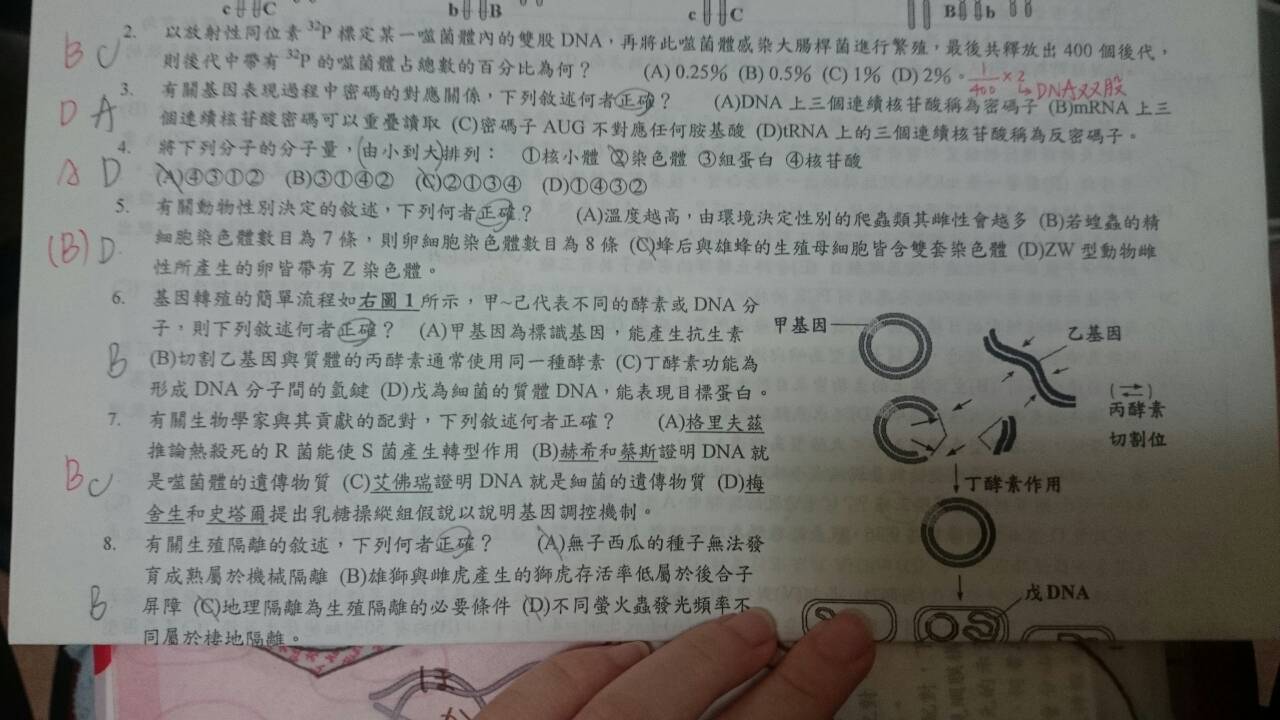 c C b B c C B b
2. 以放射性同位素 ³²P 標定某一噬菌體內的雙股 DNA，再將此噬菌體感染大腸桿菌進行繁殖，最後共釋放出 400 個後代，
B C
則後代中帶有 ³²P 的噬菌體占總數的百分比為何？ (A) 0.25% (B) 0.5% (C) 1% (D) 2%。
1/400 × 2 → DNA雙股
3. 有關基因表現過程中密碼的對應關係，下列敘述何者正確？ (A)DNA 上三個連續核苷酸稱為密碼子 (B)mRNA 上三
D A
個連續核苷酸密碼可以重疊讀取 (C)密碼子 AUG 不對應任何胺基酸 (D)tRNA 上的三個連續核苷酸稱為反密碼子。
4. 將下列分子的分子量，由小到大排列： ①核小體 ②染色體 ③組蛋白 ④核苷酸
A D (A)④③①② (B)③①④② (C)②①③④ (D)①④③②
5. 有關動物性別決定的敘述，下列何者正確？ (A)溫度越高，由環境決定性別的爬蟲類其雌性會越多 (B)若蝗蟲的精
(B) D
細胞染色體數目為 7 條，則卵細胞染色體數目為 8 條 (C)蜂后與雄蜂的生殖母細胞皆含雙套染色體 (D)ZW 型動物雌
性所產生的卵皆帶有 Z 染色體。
6. 基因轉殖的簡單流程如右圖 1 所示，甲~己代表不同的酵素或 DNA 分
子，則下列敘述何者正確？ (A)甲基因為標識基因，能產生抗生素
B (B)切割乙基因與質體的丙酵素通常使用同一種酵素 (C)丁酵素功能為
形成 DNA 分子間的氫鍵 (D)戊為細菌的質體 DNA，能表現目標蛋白。
7. 有關生物學家與其貢獻的配對，下列敘述何者正確？ (A)格里夫茲
推論熱殺死的 R 菌能使 S 菌產生轉型作用 (B)赫希和蔡斯證明 DNA 就
B C 是噬菌體的遺傳物質 (C)艾佛瑞證明 DNA 就是細菌的遺傳物質 (D)梅
舍生和史塔爾提出乳糖操縱組假說以說明基因調控機制。
8. 有關生殖隔離的敘述，下列何者正確？ (A)無子西瓜的種子無法發
育成熟屬於機械隔離 (B)雄獅與雌虎產生的獅虎存活率低屬於後合子
B 屏障 (C)地理隔離為生殖隔離的必要條件 (D)不同螢火蟲發光頻率不
同屬於棲地隔離。
甲基因
乙基因
(⇄)
丙酵素
切割位
丁酵素作用
戊DNA
ほ
か